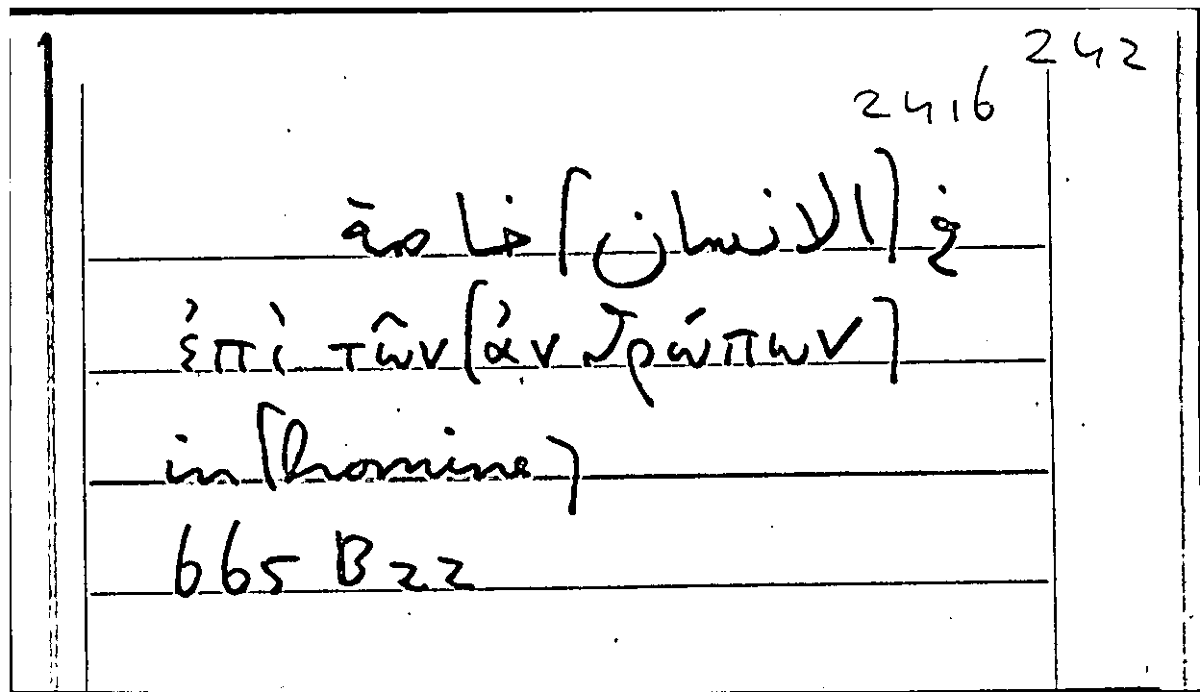 242
2416
في [الانسان] خاصة
ἐπὶ τῶν [ἀνθρώπων]
in [homine]
665 B 22